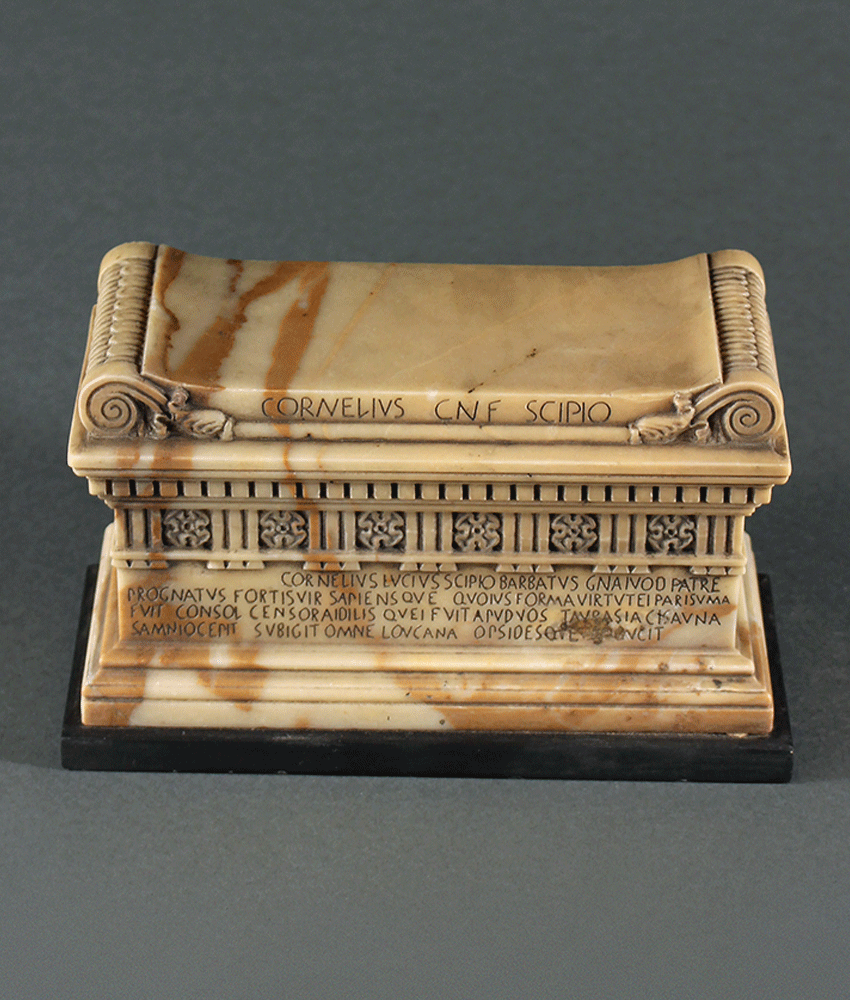 CORNELIVS CNF SCIPIO
CORNELIVS LVCIVS SCIPIO BARBATVS GNAIVOD PATRE
PROGNATVS FORTISVIR SAPIENSQVE QVOIVS FORMAVIRTVTEI PARISVMA
FVIT CONSOL CENSORAIDILIS QVEI FVIT APVDVOS TAVRASIA CISAVNA
SAMNIOCEPIT SVBIGIT OMNE LOVCANA OPSIDESQVE